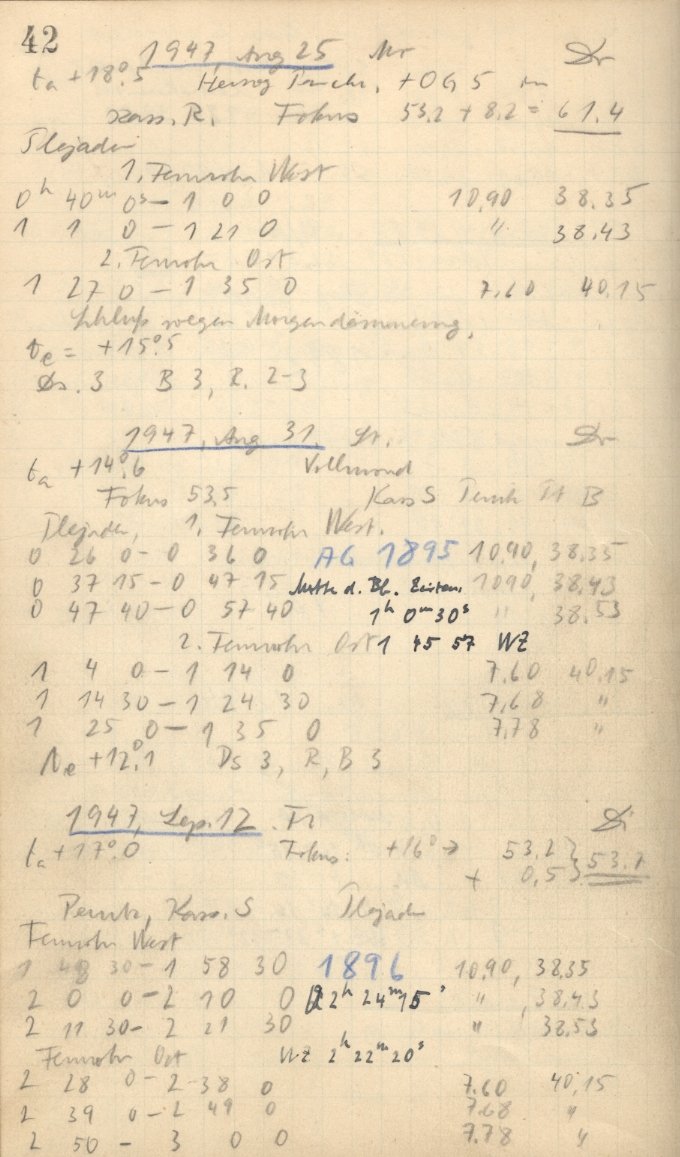 42
1947, Aug 25 Mr Dr
ta +18°.5 Herzog +OG5
Kass. R. Fokus 53,2 + 8.2 = 61.4
Plejaden
1. Fernrohr West
0h 40m 0s – 1 0 0 10,90 38.35
1 1 0 – 1 21 0 " 38.43
2. Fernrohr Ost
1 27 0 – 1 35 0 7.60 40.15
Schluß wegen Morgendämmerung.
te = +15°.5
Ds. 3 B 3, R. 2-3
1947, Aug 31. Dr
ta +14°.6 Vollmond
Fokus 53,5 Kass S B
Plejaden, 1. Fernrohr West.
0 26 0 – 0 36 0 AG 1895 10,90, 38.35
0 37 15 – 0 47 15 Mitte d. Bl. Zeiten. 10 90, 38.43
0 47 40 – 0 57 40 1h 0m 30s " 38.53
2. Fernrohr Ost 1 45 57 WZ
1 4 0 – 1 14 0 7.60 40,15
1 14 30 – 1 24 30 7,68 "
1 25 0 – 1 35 0 7.78 "
te +12°.1 Ds 3, R, B 3
1947, Sep. 12. Fr
ta +17°.0 Fokus: +16° → 53,2 } 53.7
+ 0,5 }
Kass. S Plejaden
Fernrohr West
1 48 30 – 1 58 30 1896 10,90, 38,35
2 0 0 – 2 10 0 2h 24m 15s " , 38,43
2 11 30 – 2 21 30 " 38,53
Fernrohr Ost WZ 2h 22m 20s
2 28 0 – 2 38 0 7.60 40,15
2 39 0 – 2 49 0 7.68 "
2 50 – 3 0 0 7.78 "